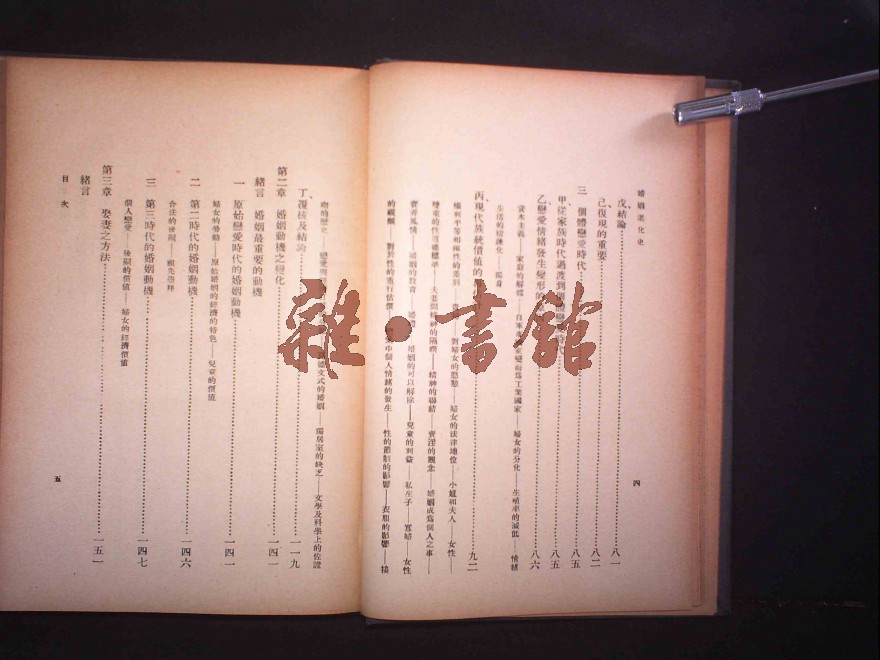 婚姻進化史
戊、結論……八一
己、復現的重要……八二
三 個體戀愛時代……八五
甲、從家族時代過渡到……八五
乙、戀愛情緒發生變形的……八六
資本主義——家庭的解體——自……變而爲工業國家——婦女的分化——生殖率的減低——情緒
生活的精練化——獨身
丙、現代族統價值的……九二
權利平等和兩性的差別——對婦女的態度——婦女的法律地位——小姐和夫人——女性——
雙重的性道德標準——夫妻間精神的隔膜——精神的聯結——賣淫的觀念——婚姻成爲個人之事——
賣弄風情——婚姻的教育——婚禮——婚姻的可以解除——兒童的利益——私生子——寡婦——女性
的——對於性的重行估價——中個人情緒的發生——性的節制的影響——衣服的影響——接
四
吻的歷史——戀愛……文式的婚姻——獨居室的缺乏——文學及科學上的佐證
丁、覆核及結論……一一九
第二章 婚姻動機之變化……一四一
緒言 婚姻最重要的動機
一 原始戀愛時代的婚姻動機……一四一
婦女的勞動——原始婚姻的經濟的特色——兒童的價值
二 第二時代的婚姻動機……一四六
合法的後嗣——祖先崇拜
三 第三時代的婚姻動機……一四七
個人戀愛——後嗣的價值——婦女的經濟價值
第三章 娶妻之方法……一五一
緒言
目次
五
雜·書館